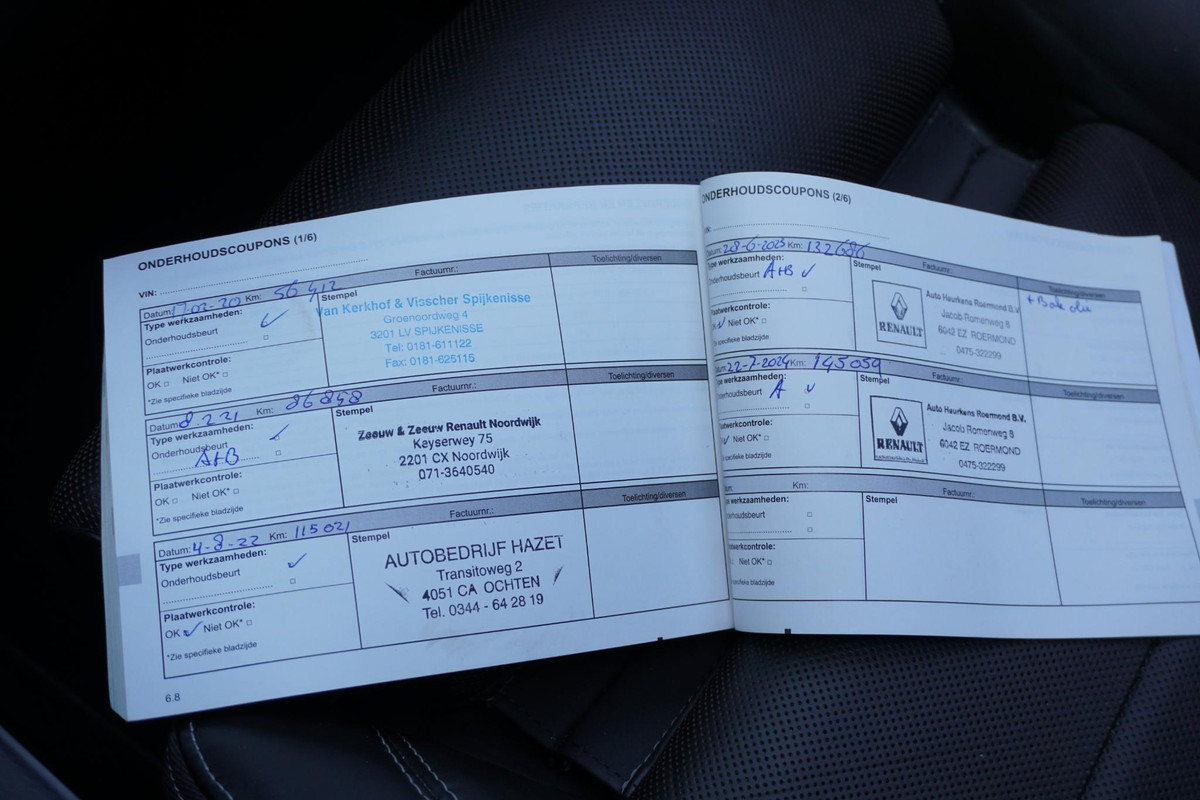 ONDERHOUDSCOUPONS (1/6)
VIN:
Datum: 17-02-20 Km: 56412 Factuurnr.: Toelichting/diversen
Type werkzaamheden: ✓
Onderhoudsbeurt
Stempel
Van Kerkhof & Visscher Spijkenisse
Groenoordweg 4
3201 LV SPIJKENISSE
Tel: 0181-611122
Fax: 0181-625115
Plaatwerkcontrole:
OK □ Niet OK* □
*Zie specifieke bladzijde
Datum: 8.2 21 Km: 86848 Factuurnr.: Toelichting/diversen
Type werkzaamheden: ✓
Onderhoudsbeurt
A+B
Stempel
Zeeuw & Zeeuw Renault Noordwijk
Keyserwey 75
2201 CX Noordwijk
071-3640540
Plaatwerkcontrole:
OK □ Niet OK* □
*Zie specifieke bladzijde
Datum: 4-8-22 Km: 115021 Factuurnr.: Toelichting/diversen
Type werkzaamheden: ✓
Onderhoudsbeurt
Stempel
AUTOBEDRIJF HAZET
Transitoweg 2
4051 CA OCHTEN
Tel. 0344 - 64 28 19
Plaatwerkcontrole:
OK ✓ Niet OK* □
*Zie specifieke bladzijde
6.8
ONDERHOUDSCOUPONS (2/6)
Datum: 28-6-2023 Km: 132686 Factuurnr.: Toelichting/diversen
Type werkzaamheden:
Onderhoudsbeurt A+B ✓
Stempel
RENAULT
Auto Heurkens Roermond B.V.
Jacob Romenweg 8
6042 EZ ROERMOND
0475-322299
+ Bak olie
Plaatwerkcontrole:
OK ✓ Niet OK* □
*Zie specifieke bladzijde
Datum: 22-7-2024 Km: 145059 Factuurnr.: Toelichting/diversen
Type werkzaamheden:
Onderhoudsbeurt A ✓
Stempel
RENAULT
Auto Heurkens Roermond B.V.
Jacob Romenweg 8
6042 EZ ROERMOND
0475-322299
Plaatwerkcontrole:
✓ Niet OK* □
specifieke bladzijde
Km: Factuurnr.: Toelichting/diversen
werkzaamheden:
Onderhoudsbeurt
Stempel
Plaatwerkcontrole:
Niet OK* □
specifieke bladzijde